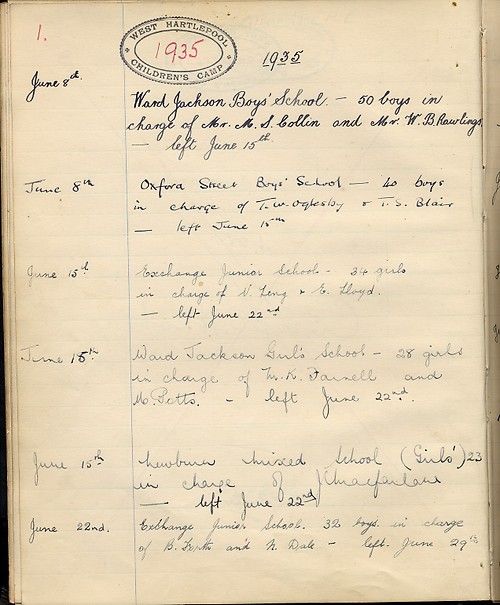 1.
WEST HARTLEPOOL
1935
CHILDREN'S CAMP
1935
June 8th.
Ward Jackson Boys' School. — 50 boys in
charge of Mr. M. S. Collin and Mr. W. B Rawlings.
— left June 15th.
June 8th
Oxford Street Boys' School — 40 boys
in charge of T. W. Oglesby & T. S. Blair
— left June 15th
June 15th
Exchange Junior School - 34 girls
in charge of V. Leng & E. Lloyd.
— left June 22nd
June 15th
Ward Jackson Girls School — 28 girls
in charge of M. K. Farnell and
M. Potts. - left June 22nd.
June 15th
Newburn Mixed School (Girls') 23
in charge of J Macfarlane
— left June 22nd
June 22nd.
Exchange Junior School. 32 boys. in charge
of B. Firth and N. Dale - left June 29th